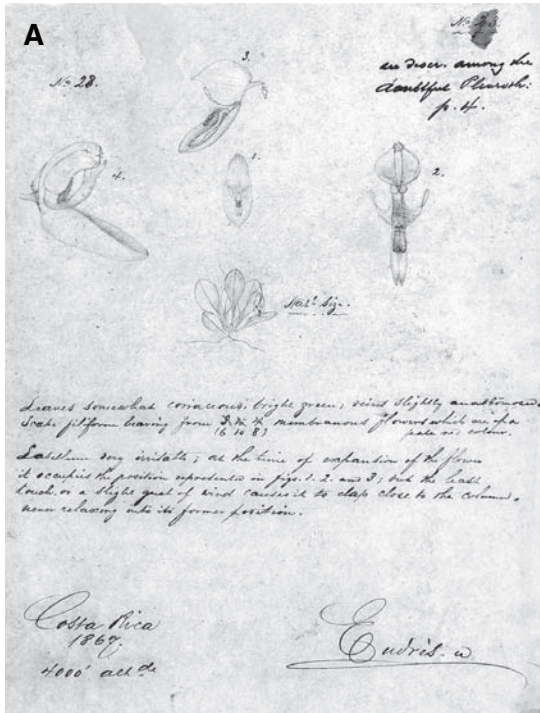 A
No 28.
see descr. among the
doubtful Pleuroth:
p. 4.
No 28.
3.
4.
1.
2.
Natl. size.
Leaves somewhat coriaceous, bright green, veins slightly anastomosed.
Scape filiform bearing from membranous flowers which are of a
(6 to 8) pale red colour.
Labellum very irritable; at the time of expansion of the flower
it occupies the position represented in figs. 1. 2. and 3; but the least
touch, or a slight gust of wind causes it to clap close to the column,
never relaxing into its former position.
Costa Rica
1867.
4000' altde
Endrés.